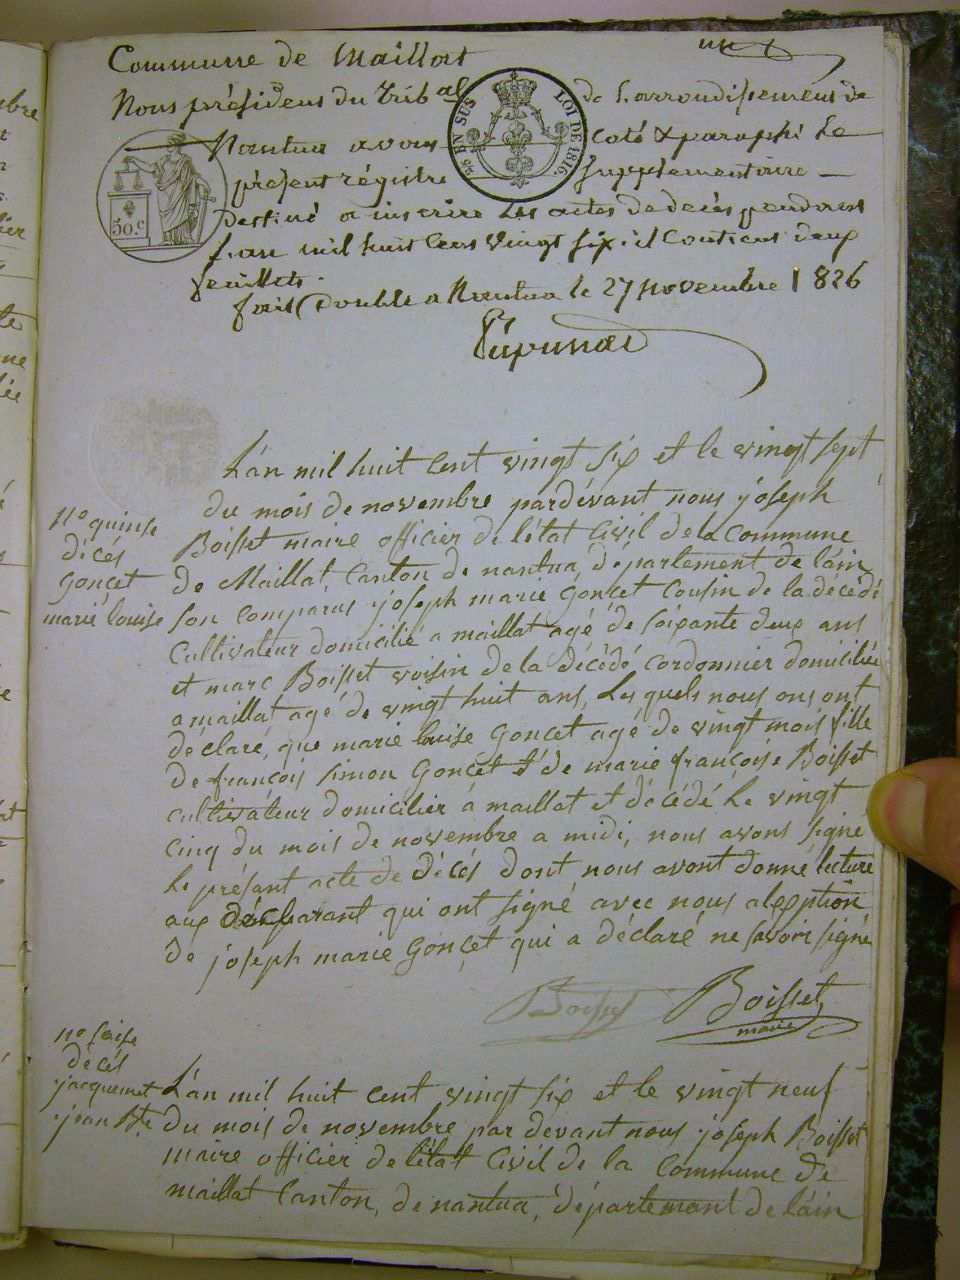 un
Commune de Maillat
Nous président du Tribal de l'arrondissement de
Nantua avons coté & paraphé le
présent régistre supplémentaire
destiné a inscrire les actes de décès pendant
l'an mil huit cent vingt six il contient deux
feuillets.
fait double a Nantua le 27 novembre 1826
EN SUS
LOI DE 1816.
50.c
L'an mil huit cent vingt six et le vingt sept
du mois de novembre pardévant nous joseph
Boisset maire officier de l'état Civil de la Commune
de Maillat, Canton de nantua, département de l'ain
son comparus joseph marie Gonçet Cousin de la décédé
cultivateur domicilié a maillat agé de soixante deux ans
et marc Boisset voisin de la décédé cordonnier domicilié
a maillat agé de vingt huit ans, les quels nous ons ont
déclaré, que marie louise Gonçet agé de vingt mois fille
de françois simon Gonçet & de marie françoise Boisset
cultivateur domicilier á maillat et décédé le vingt
cinq du mois de novembre a midi, nous avons signé
le présant acte de décés dont nous avont donné lecture
aux déclarant qui ont signé avec nous a lexption
de joseph marie Gonçet qui a déclaré ne savoir signé
no quinse
décés
Gonçet
marie louise
Boisset
Boisset
maire
no saise
décés
jacquemet
jean Bte
L'an mil huit cent vingt six et le vingt neuf
du mois de novembre par devant nous joseph Boisset
maire officier de l'état Civil de la Commune de
maillat Canton, de nantua, département de l'ain